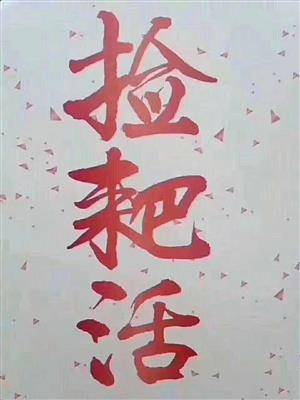 捡耙活